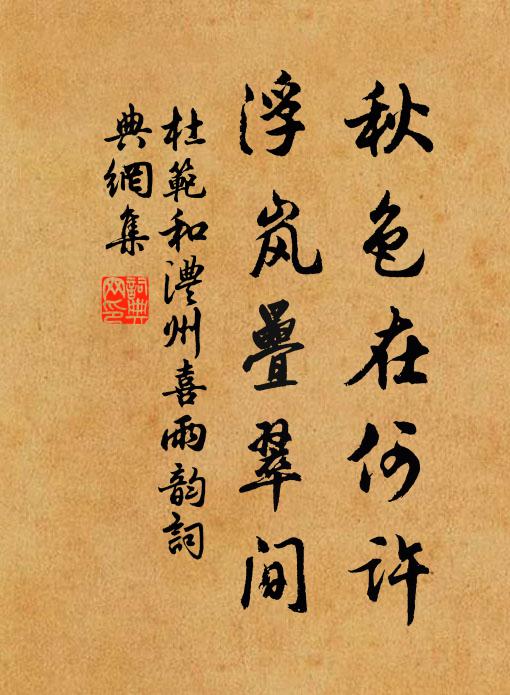 秋色在何许
浮岚疊翠间
杜範和澧州喜雨韵詞
典網集
詞典
网印